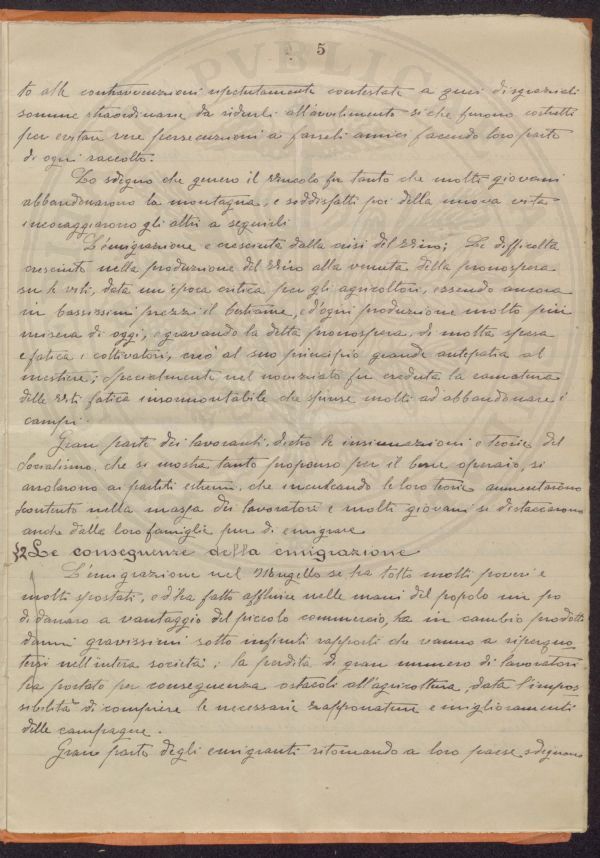 5
to alle contravvenzioni ripetutamente contestate a quei disgraziati
somme straordinarie da ridurli all'avvilimento si che furono costretti
per evitare vere persecuzioni a farseli amici facendo loro parte
di ogni raccolto.
Lo sdegno che generò il vincolo fu tanto che molti giovani
abbandonarono la montagna, e soddisfatti poi della nuova vita
incoraggiarono gli altri a seguirli
L'emigrazione e cresciuta dalla crisi del vino; Le difficoltà
cresciute nella produzione del vino alla venuta della pronospera
su le viti, data un'epoca critica per gli agricoltori, essendo ancora
in bassissimi prezzi il bestiame, e d'ogni produzione molto più
misera di oggi, e gravando la detta pronospera, di molta spesa
e fatica i coltivatori, creò al suo principio grande antipatia al
mestiere; specialmente nel noviziato fu creduta la ramatura
delle viti fatica insormontabile che spinse molti ad abbandonare i
campi.
Gran parte dei lavoranti, dietro le insinuazioni e teorie del
Socialismo, che si mostra tanto propenso per il bene operaio, si
arrolarono ai partiti estremi, che inculcando le loro teorie aumentarono
scontento nella massa dei lavoratori e molti giovani si distaccarono
anche dalla loro famiglia pur di emigrare
§2 Le conseguenze della emigrazione
L'emigrazione nel Mugello se ha tolto molti poveri e
molti spostati, e d'ha fatto affluire nelle mani del popolo un po
di danaro a vantaggio del piccolo commercio, ha in cambio prodotti
danni gravissimi sotto infiniti rapporti che vanno a ripercuo-
tersi nell'intera società; la perdita di gran numero di lavoratori
ha portato per conseguenza ostacoli all'agricoltura, data l'impos-
sibilità di compiere le necessarie zappronature e miglioramenti
delle campagne.
Gran parte degli emigranti ritornando a loro paese sdegnano